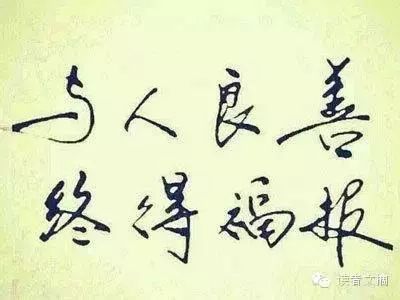 与人良善
终得福报
读者文摘